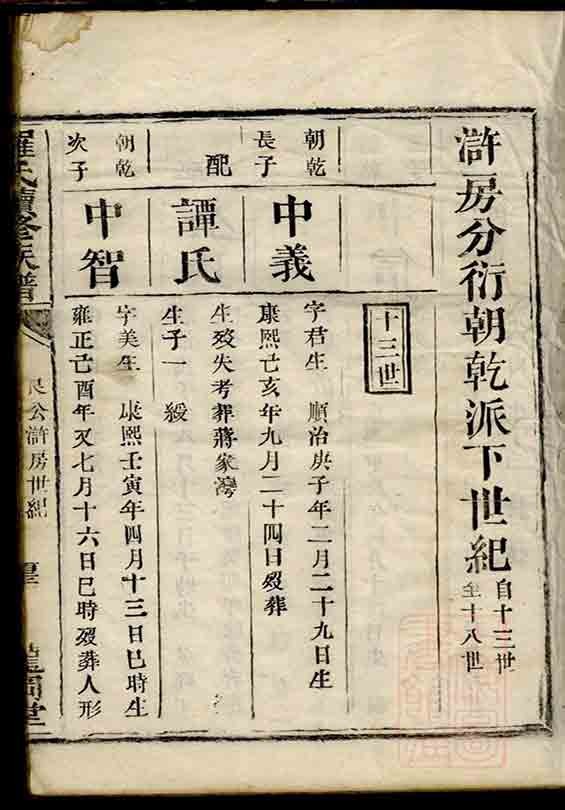 滸房分衍朝乾派下世紀 自十三世至十八世
十三世
朝乾長子
中義
字君生 順治庚子年二月二十九日生
康熙己亥年九月二十四日歿葬
配
譚氏
生歿失考葬蔣家灣
生子一 緩
朝乾次子
中智
字美生 康熙壬寅年四月十三日巳時生
雍正己酉年又七月十六日巳時歿葬人形
羅氏續修族譜
公滸房世紀